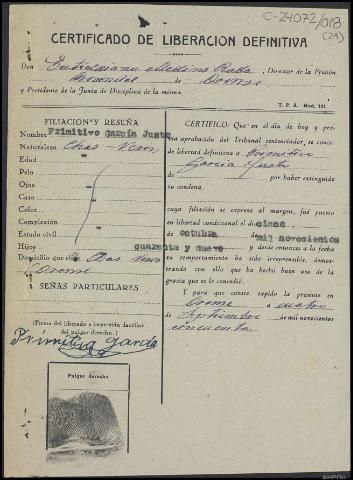 C-24072/018
(21)
CERTIFICADO DE LIBERACION DEFINITIVA
Don Eutiquiano Medina Rada, Director de la Prisión
Provincial de Orense
y Presidente de la Junta de Disciplina de la misma.
T. P. A.-Mod. 141
FILIACION Y RESEÑA
Nombre Primitivo García Justo
Naturaleza Chas-Verin
Edad
Pelo
Ojos
Cara
Color
Complexión
Estado civil
Hijos
Domicilio que Chas Verin
Orense
SEÑAS PARTICULARES
(Firma del liberado e impresión dactilar
del pulgar derecho.)
Primitivo Garcia
Pulgar derecho
CERTIFICO: Que en el día de hoy y pre-
via aprobación del Tribunal sentenciador, se conce-
de libertad definitiva a Primitivo
Garcia Justo
de por haber extinguido
su condena.
cuya filiación se expresa al margen, fué puesto
en libertad condicional el día cinco
de octubre de mil novecientos
cuarenta y nueve y desde entonces a la fecha
su comportamiento ha sido irreprensible, demos-
trando con ello que ha hecho buen uso de la
gracia que se le concedió.
Y para que conste expido la presente en
Orense a cuatro
de Septiembre de mil novecientos
cincuenta